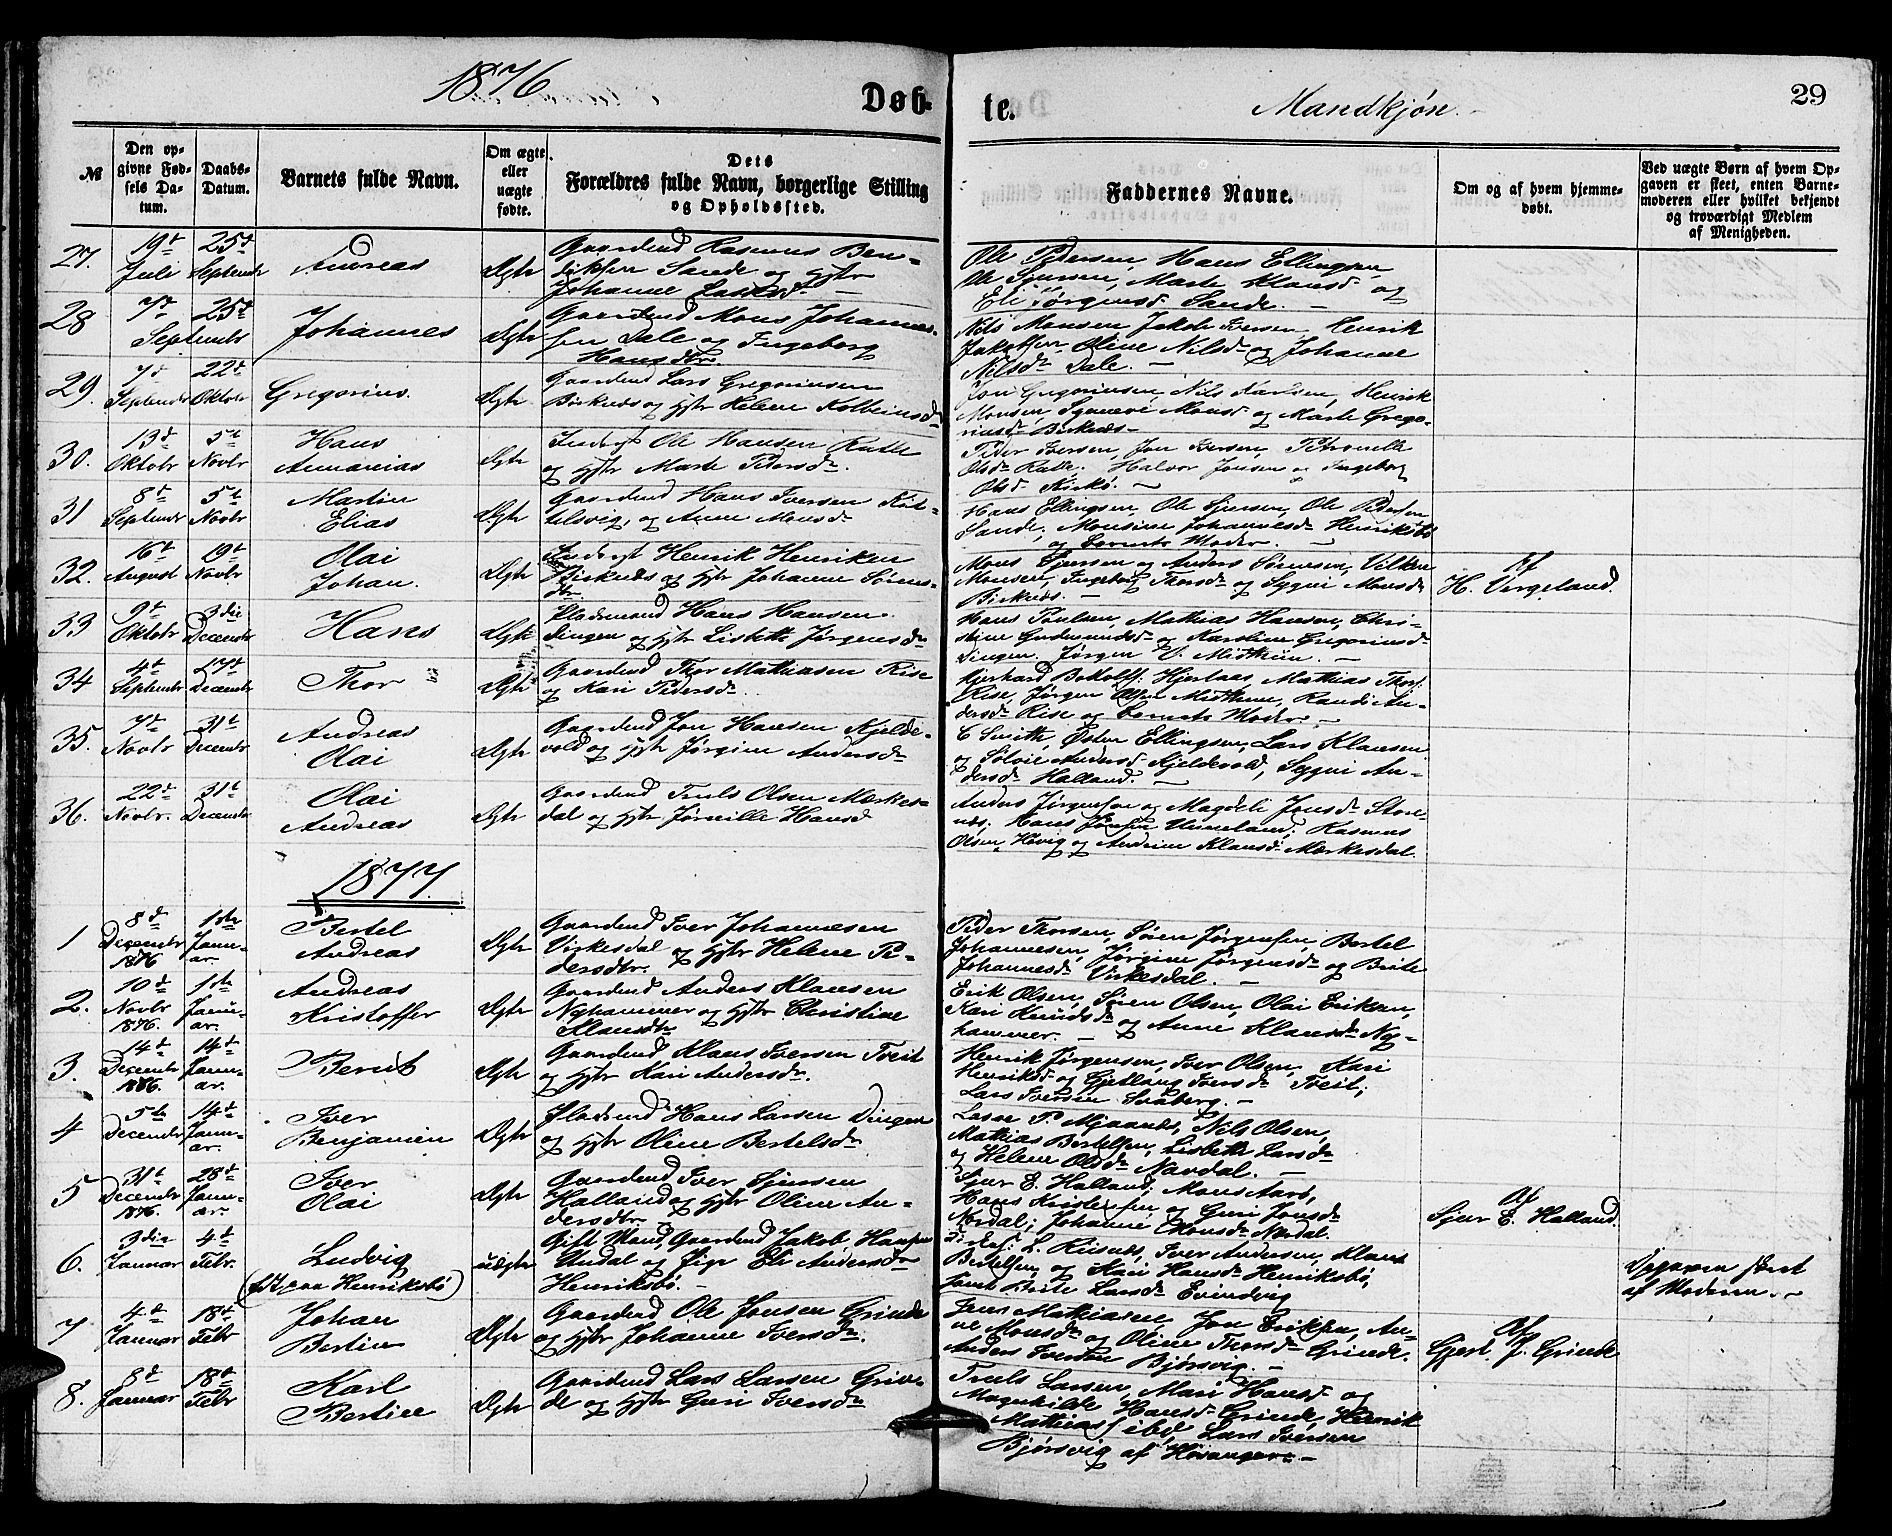 1876 Døb-
te. Mandkjøn. 29
№
Den op-
givne Fød-
sels Da-
tum.
Daabs-
Datum.
Barnets fulde Navn.
Om ægte
eller
uægte
fødte.
Dets
Forældres fulde Navn, borgerlige Stilling
og Opholdssted.
Faddernes Navne.
Om og af hvem hjemme-
døbt.
Ved uægte Børn af hvem Op-
gaven er skeet, enten Barne-
moderen eller hvilket bekjendt
og troværdigt Medlem
af Menigheden.
27.
19d
Juli
25d
Septembr
Andreas
Ægte
Gaardmd Rasmus Ben-
diksen Sande og Hstr
Johanne Larsd
Ole Pedersen, Hans Ellingsen
Ole Sjursen, Marte Klausd og
Eli Jørgensd Sande. —
28
7d
25d
Septembr
Johannes
Ægte
Gaardmd Mons Johannes-
sen Dale og Ingeborg
Hansdtr
Nils Monsen, Jakob Iversen, Henrik
Jakobsen, Oline Nilsd og Johanne
Nilsd Dale. —
29.
7d
Septembr
22d
Oktobr
Gregorius.
Ægte
Gaardmd Lars Gregoriusen
Birknes og Hstr Helene Kolbeinsd
Jon Gregoriusen, Nils Larsen, Henrik
Monsen, Synneve Monsd og Marte Grego-
riusd Birknes —
30.
13d
Oktobr
5t
Novbr
Hans
Annanias
Ægte
Inderst Ole Hansen Rutle
og Hstr Marte Pedersd.
Peder Iversen, Jon Iversen, Petronelle
Olsd Rutle. Halvor Jonsen og Ingeborg
Olsd Kirkø. —
31
8d
Septembr
5t
Novbr
Martin
Elias
Ægte
Gaardmd Hans Iversen Kit-
telsvig, og Anne Monsd
Hans Ellingsen, Ole Sjursen, Ole Pedersen
Sande, Monsine Johannesd Henriksbø
og Barnets Moder. —
32.
16d
August
19d
Novbr
Olai
Johan.
Ægte
Inderst Henrik Henriken
Birknes og Hstr Johanne Sørens-
dtr
Mons Sjursen og Anders Sørensen, Vilken
Monsen, Ingeborg Thorsd og Sygni Monsd
Birknes. —
Af
H. Vergeland.
33
9d
Oktobr
3die
Decembr
Hans
Ægte
Pladsmand Hans Hansen
Dingen og Hstr Lisbeth Jørgensd
Hans Poulsen, Mathias Hansen, Chri-
stine Gudmundsd og Karoline Gregoriusd
Dingen. Jørgen P. Midthun. —
34
4d
Septembr
17d
Decembr
Thor
Ægte
Gaardmd Thor Mathiasen Rise
og Kari Pedersd.
Gjerhard Botolfs: Hjertaas, Mathias Thors:
Rise, Jørgen Olsen Midthun, Randi An-
dersd Rise og Barnets Moder —
35.
7d
Novbr
31t
Decembr
Andreas
Olai
Ægte
Gaardmd Jon Hansen Kjelde-
vold og Hstr Jørgine Andersd
C Smith, Østen Ellingsen, Lars Klausen
og Sølvie Andersd Kjeldevold, Sygni An-
dersd Halland. —
36.
22d
Novbr.
31t
Decembr
Olai
Andreas
Ægte
Gaardmd Truls Olsen Mærkes-
dal og Hstr Jørnille Hansd
Anders Jørgensen og Magdeli Jonsd Store-
næs, Hans Jonsen Unneland, Rasmus
Olsen Høvig og Andrine Klausd Mærkesdal.
1877
1
8d
Decembr
1876
1ste
Janu-
ar.
Bertel
Andreas
Ægte
Gaardmd Iver Johannesen
Virkesdal og Hstr Helene Pe-
dersdtr.
Peder Thorsen, Søren Jørgensen, Bertel
Johannesen, Jørgine Jørgensd og Brite
Johannesd Virkesdal. —
2.
10d
Novbr
1876.
1ste
Janu-
ar.
Andreas
Kristoffer
Ægte
Gaardmd Anders Klausen
Nyhammer og Hstr Christine
Klausdtr
Erik Olsen, Søren Olsen, Olai Eriksen,
Kari Knudsd og Anne Klausd Ny-
hammer. —
3.
14d
Decembr
1876.
14d
Janu-
ar.
Bernt
Ægte
Gaardmd Klaus Iversen Tveit
og Hstr Kari Andersd.
Henrik Jørgensen, Iver Olsen, Kari
Henriksd og Gjetlaug Iversd Tveit,
Lars Iversen Svaberg. —
4
5te
Decembr
14d
Janu-
ar.
Iver
Benjamin
Ægte
Pladsmd Hans Larsen Dingen
og Hstr Oline Bertelsd
Lasse P. Mjaanes, Nils Olsen,
Mathias Bertelsen, Lisbeth Larsd
og Helene Olsd Nordal. —
5
31t
Decembr
1876.
28d
Janu-
ar.
Iver
Olai
Ægte
Gaardmd Iver Sjursen
Halland og Hstr Oline An-
dersdtr.
Sjur E. Halland, Mons Aars,
Hans Kristensen og Guri Jonsd
Nordal; Johanne Monsd Nordal.
Af
Sjur E. Halland.
6.
3die
Januar
4d
Febr.
Ludvig
(født paa Henriksbø)
uægte
Gift Mand, Gaardmd Jakob Hansen
Undal og Pige Eli Andersdtr
Henriksbø.
L. Risnes, Iver Andersen, Klaus
Bertelsen og Kari Hansd Henriksbø,
samt Brite Larsd Evindvig
Opgaven skeet
af Moderen. —
7
4d
Januar
18d
Febr
Johan
Bertin
Ægte
Gaardmd Ole Jonsen Grinde
og Hstr Johanne Iversd.
Jens Mathiasen, Jon Eriksen, An-
ne Monsd og Oline Thorsd Grinde.
Anders Iversen Bjørsvig. —
Af
Gjert. J. Grinde
8.
8d
Januar
18d
Febr
Karl
Bertin
Ægte
Gaardmd Lars Larsen Grin-
de og Hstr Guri Iversd
Truls Larsen, Mari Hansd og
Magnhilde Hansd Grinde, Henrik
Mathias: ibd, Lars Iversen
Bjørsvig af Hosanger —